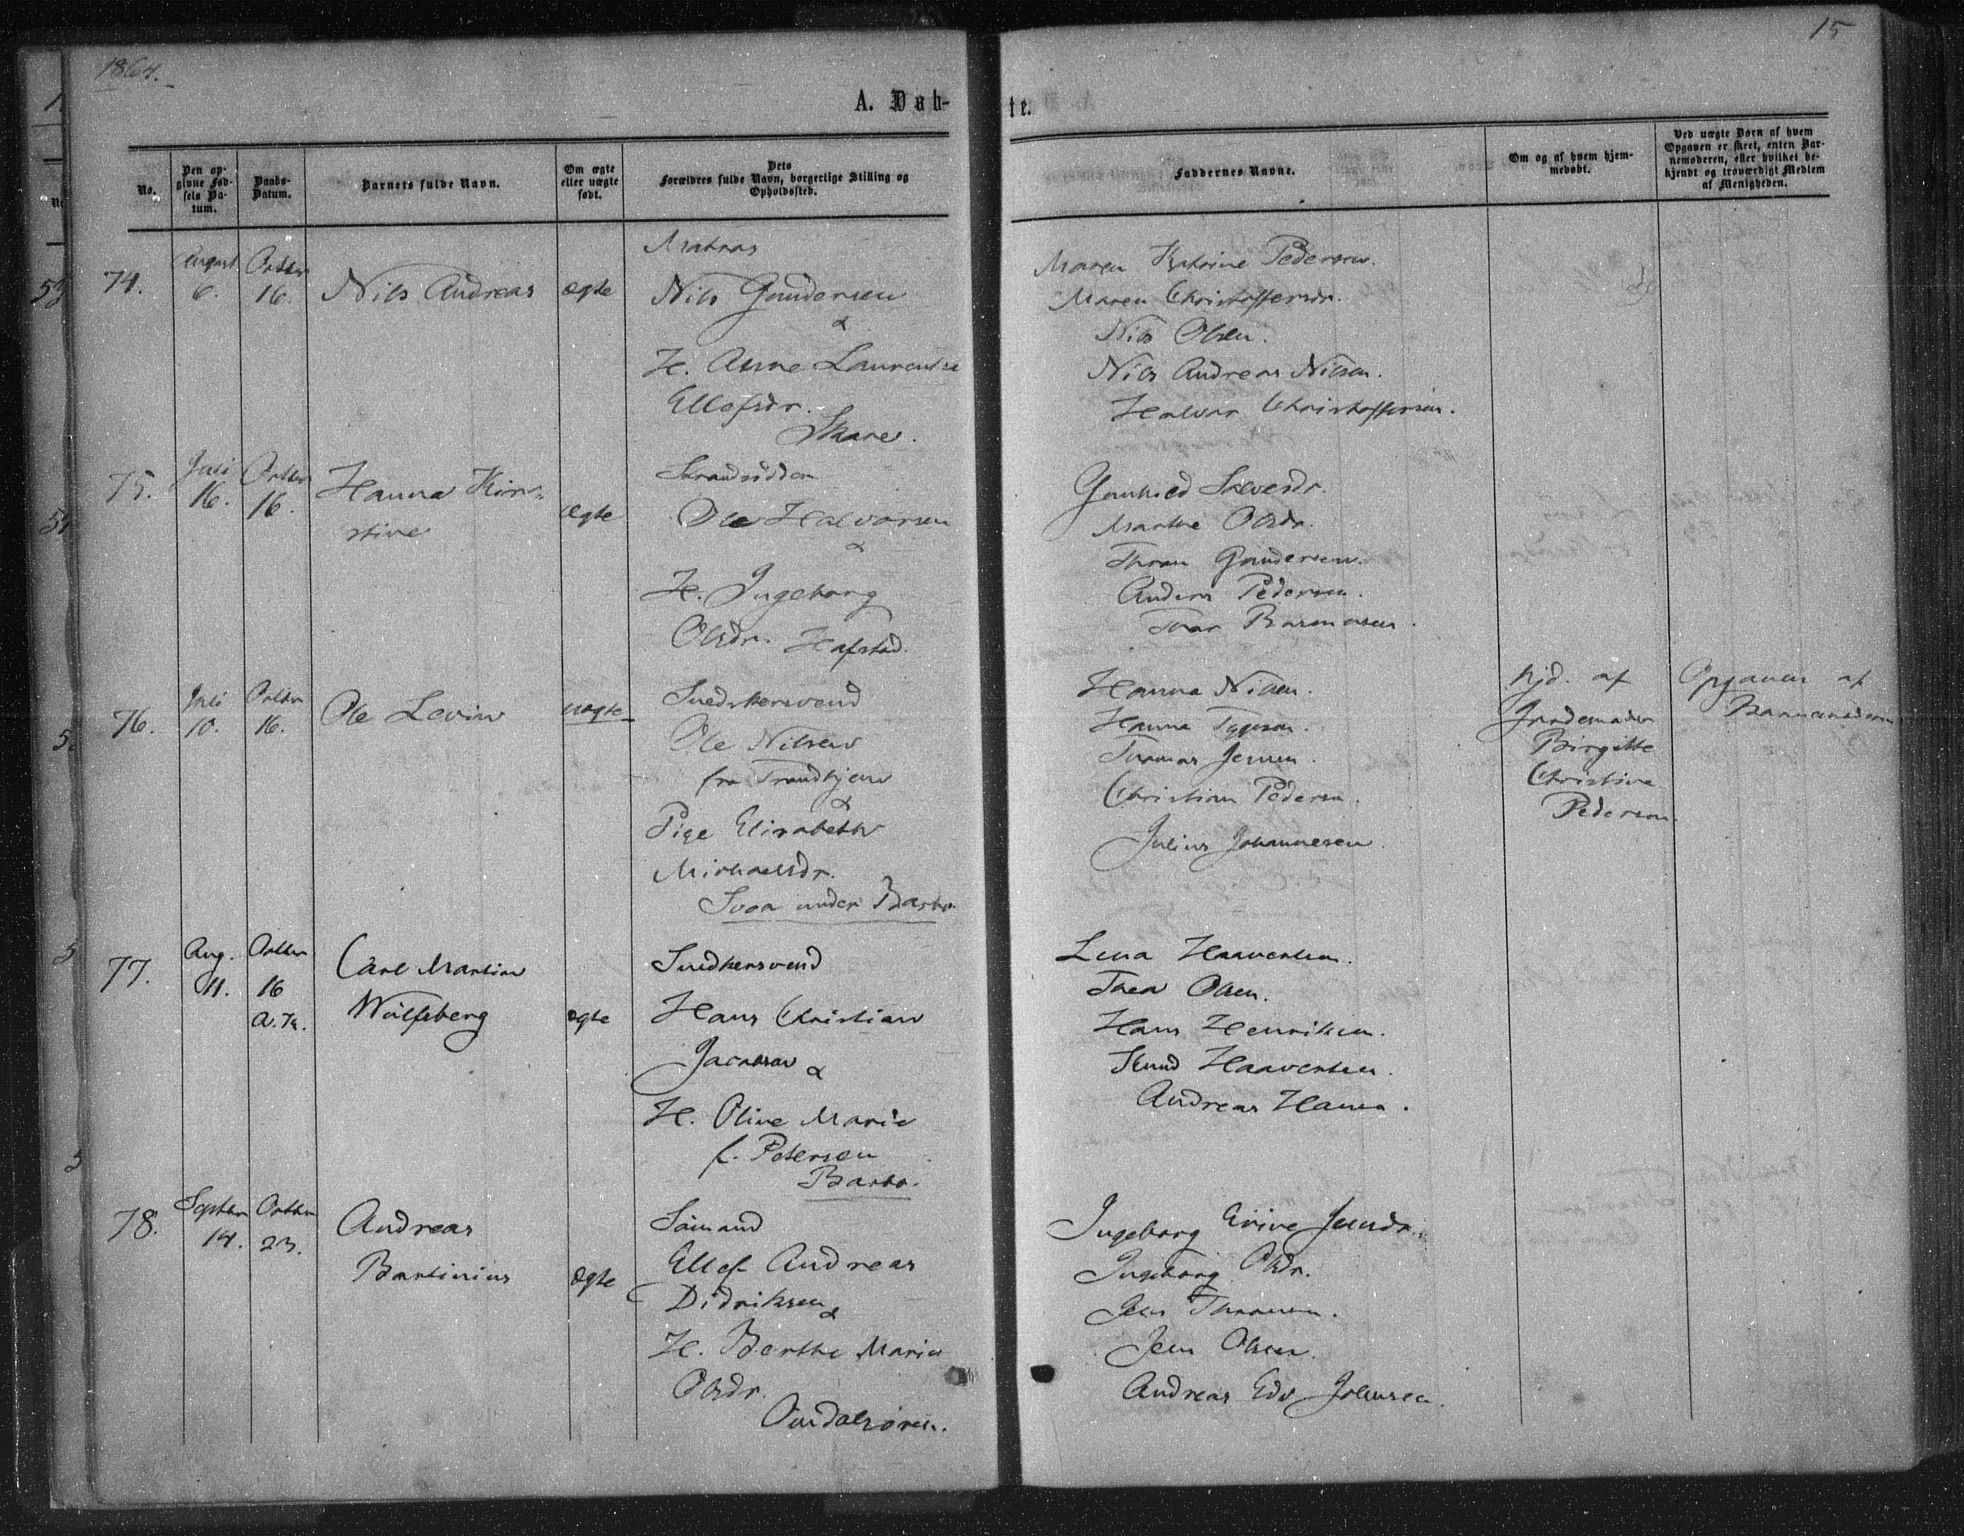 1864.
15
A. Døb-
te.
No.
Den op-
givne Fød-
sels Da-
tum.
Daabs-
Datum.
Barnets fulde Navn.
Om ægte
eller uægte
født.
Dets
Forældres fulde Navn, borgerlige Stilling og
Opholdssted.
Faddernes Navne.
Om og af hvem hjem-
medøbt.
Ved uægte Børn af hvem
Opgaven er skeet, enten Bar-
nemoderen, eller hvilket be-
kjendt og troværdigt Medlem
af Menigheden.
74.
August
6.
Octbr
16.
Nils Andreas
ægte
Matros
Nils Gundersen
&
H. Anne Laurentse
Ellefsdr.
Skare.
Maren Katrine Pedersen.
Maren Christoffersdr.
Nils Olsen.
Nils Andreas Nilsen.
Halvor Christoffersen.
75.
Juli
16.
Octbr
16.
Hanna Kir-
stine
ægte
Strandsidder
Ole Halvorsen
&
H. Ingeborg
Olsdr. Hafstad.
Gunhild Salvesdr.
Marthe Olsdr.
Gundersen.
Anders Pedersen.
76.
Juli
10.
Octbr
16.
Ole Levin
uægte
Snedkersvend
Ole Nilsen
fra Trondhjem
&
Pige Elisabeth
Michaelsdr.
under Barbo
Hanna Nilsen.
Hanna
Thomas Jensen.
Christian Pedersen.
Julius Johannesen.
hjd. af
Jordemoder
Birgitte
Christine
Pedersen
Opgaven af
Barnemoderen
77.
Aug.
11.
Octbr
16
Carl Martin
Wulfsberg
ægte
Snedkersvend
Hans Christian
Jacobsen &
H. Oline Marie
f. Petersen
Barbo.
Lena Haavorsen.
Thea Olsen.
Hans Henriksen.
Knud Haavorsen.
Andreas Hansen.
78.
Septbr
14.
Octbr
23.
Andreas
Bertinius
ægte
Sömand
Ellef Andreas
Didriksen &
H. Berthe Marie
Olsdr.
Omdalsøren.
Ingeborg
Ingeborg Olsdr.
Jens
Jens Olsen.
Andreas Edv Johnsen.